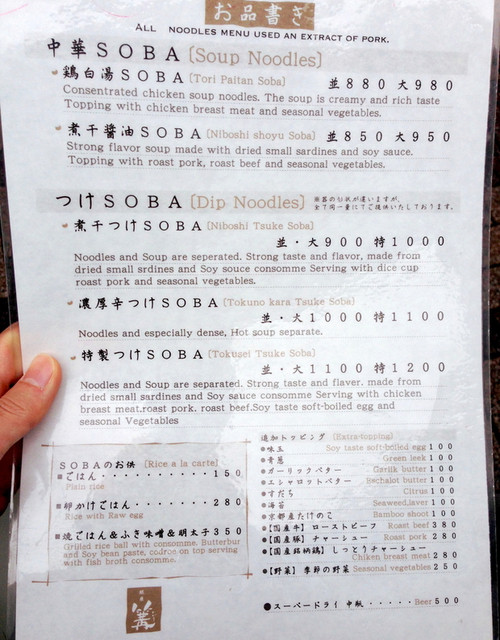 お品書き
ALL NOODLES MENU USED AN EXTRACT OF PORK.
中華SOBA [Soup Noodles]
鶏白湯SOBA (Tori Paitan Soba) 並880 大980
Consentrated chicken soup noodles. The soup is creamy and rich taste
Topping with chicken breast meat and seasonal vegetables.
煮干醤油SOBA (Niboshi shoyu Soba) 並850 大950
Strong flavor soup made with dried small sardines and soy sauce.
Topping with roast pork, roast beef and seasonal vegetables.
つけSOBA [Dip Noodles]
全て同一量にてご提供いたしております。
煮干つけSOBA (Niboshi Tsuke Soba)
並・大900 特1000
Noodles and Soup are seperated. Strong taste and flavor, made from
dried small srdines and Soy souce consomme Serving with dice cup
roast pork and seasonal vegetables.
濃厚辛つけSOBA (Tokuno kara Tsuke Soba)
並・大1000 特1100
Noodles and especially dense, Hot soup separate.
特製つけSOBA (Tokusei Tsuke Soba)
並・大1100 特1200
Noodles and Soup are separated. Strong taste and flaver. made from
dried small sardines and Soy sauce consomme Serving with chicken
breast meat.roast pork. roast beef.Soy taste soft-boiled egg and
seasonal Vegetables
SOBAのお供 (Rice a la carte)
ごはん・・・・・・・・・・150
Plain rice
卵かけごはん・・・・・・・280
Rice with Raw egg
焼ごはん&ふき味噌&明太子350
Grilled rice ball with consomme. Butterbur
and Soy bean paste, codroe on top serving
with fish broth consomme.
追加トッピング (Extra-topping)
味玉 Soy taste soft-boiled egg 100
青葱 Green leek 100
ガーリックバター Garlik butter 100
エシャロットバター Eschalot butter 100
すだち Citrus 100
海苔 Seaweed.laver 100
京都産たけのこ Bamboo shoot 100
【国産牛】ローストビーフ Roast beef 380
【国産豚】チャーシュー Roast pork 280
【国産銘柄鶏】しっとりチャーシュー
Chiken breast meat 280
【野菜】季節の野菜 Seesonal vegetables 250
●スーパードライ 中瓶・・・・・Beer 500